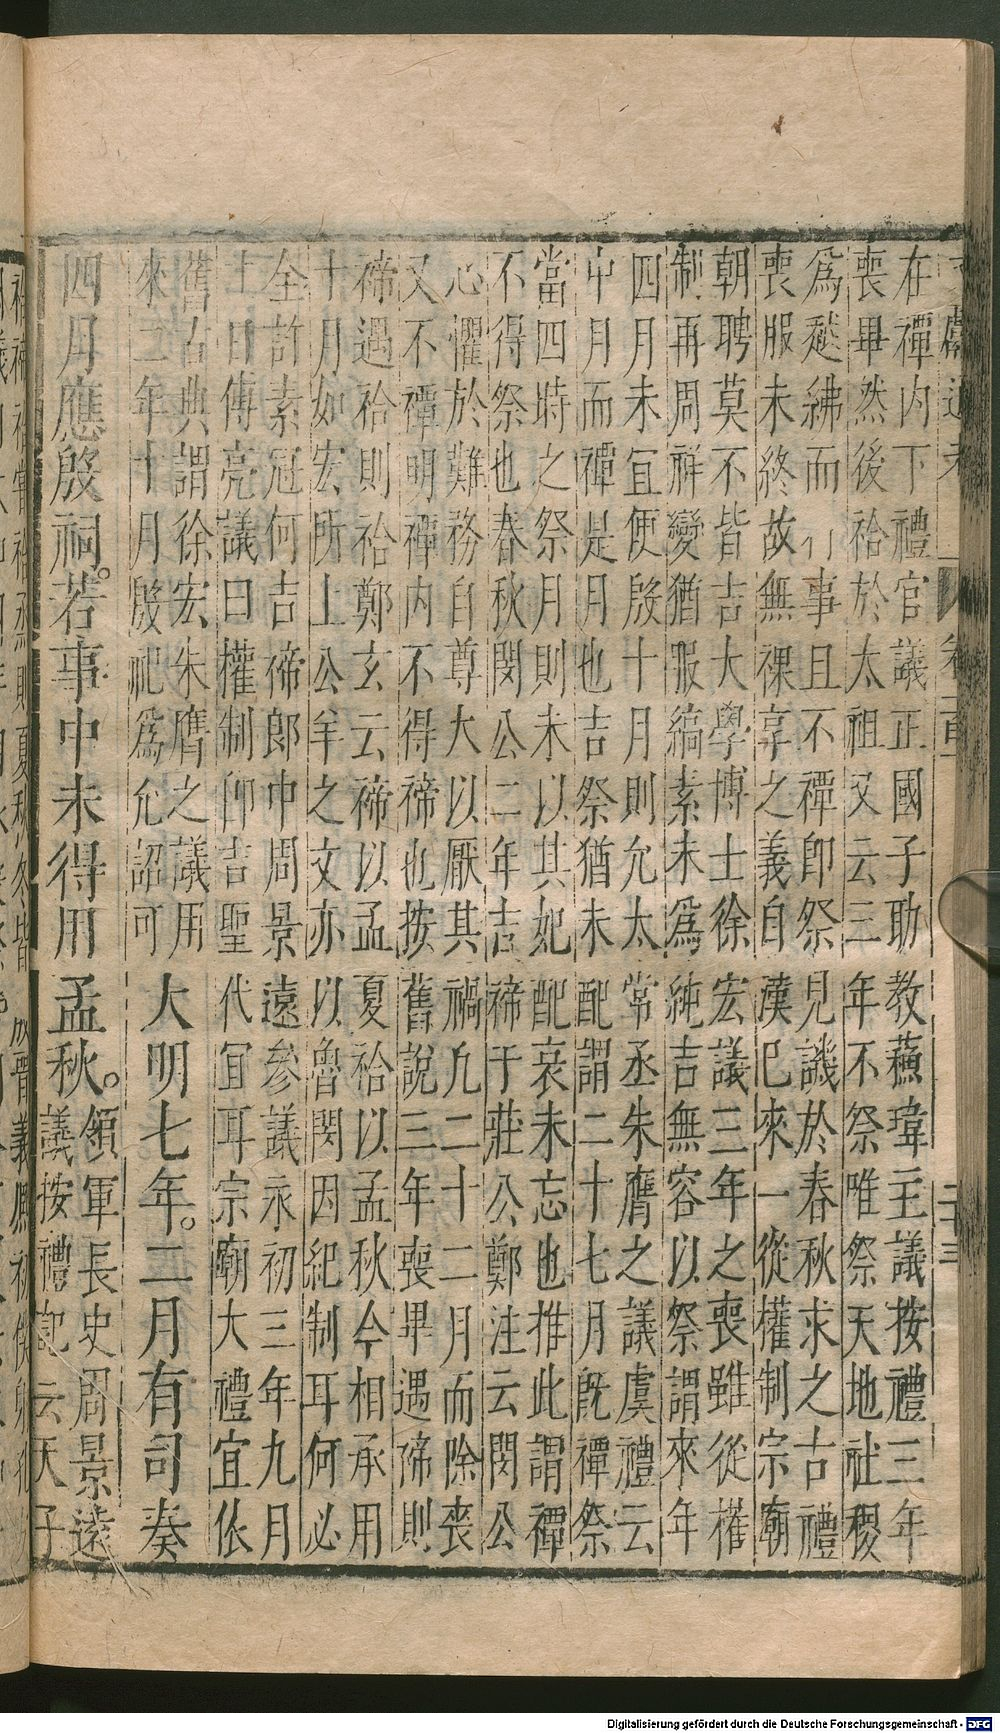 在禫内下禮官議正國子助教蘇瑋主議按禮三年
喪畢然後祫於太祖又云三年不祭唯祭天地社稷
爲越紼而行事且不禫卽祭見譏於春秋求之古禮
喪服未終故無祼享之義自漢已來一從權制宗廟
朝聘莫不皆吉大學博士徐宏議三年之喪雖從權
制再周祥變猶服縞素未爲純吉無容以祭謂來年
四月未宜便殷十月則允太常丞朱膺之議虞禮云
中月而禫是月也吉祭猶未配謂二十七月旣禫祭
當四時之祭月則未以其妃配哀未忘也推此謂禫
不得祭也春秋閔公二年吉禘于莊公鄭注云閔公
心懼於難務自尊大以厭其禍凡二十二月而除喪
又不禫明禫内不得禘也按舊說三年喪畢遇禘則
禘遇祫則祫鄭玄云禘以孟夏祫以孟秋今相承用
十月如宏所上公羊之文亦以魯閔因紀制耳何必
全許素冠何吉禘郎中周景遠參議永初三年九月
土日傅亮議曰權制卽吉聖代宜耳宗廟大禮宜依
舊古典謂徐宏朱膺之議用
來三年十月殷祀爲允詔可
大明七年。二月有司奏
四月應殷祠。若事中未得用孟秋。
領軍長史周景遠
議按禮記云天子
二十三
Digitalisierung gefördert durch die Deutsche Forschungsgemeinschaft - DFG